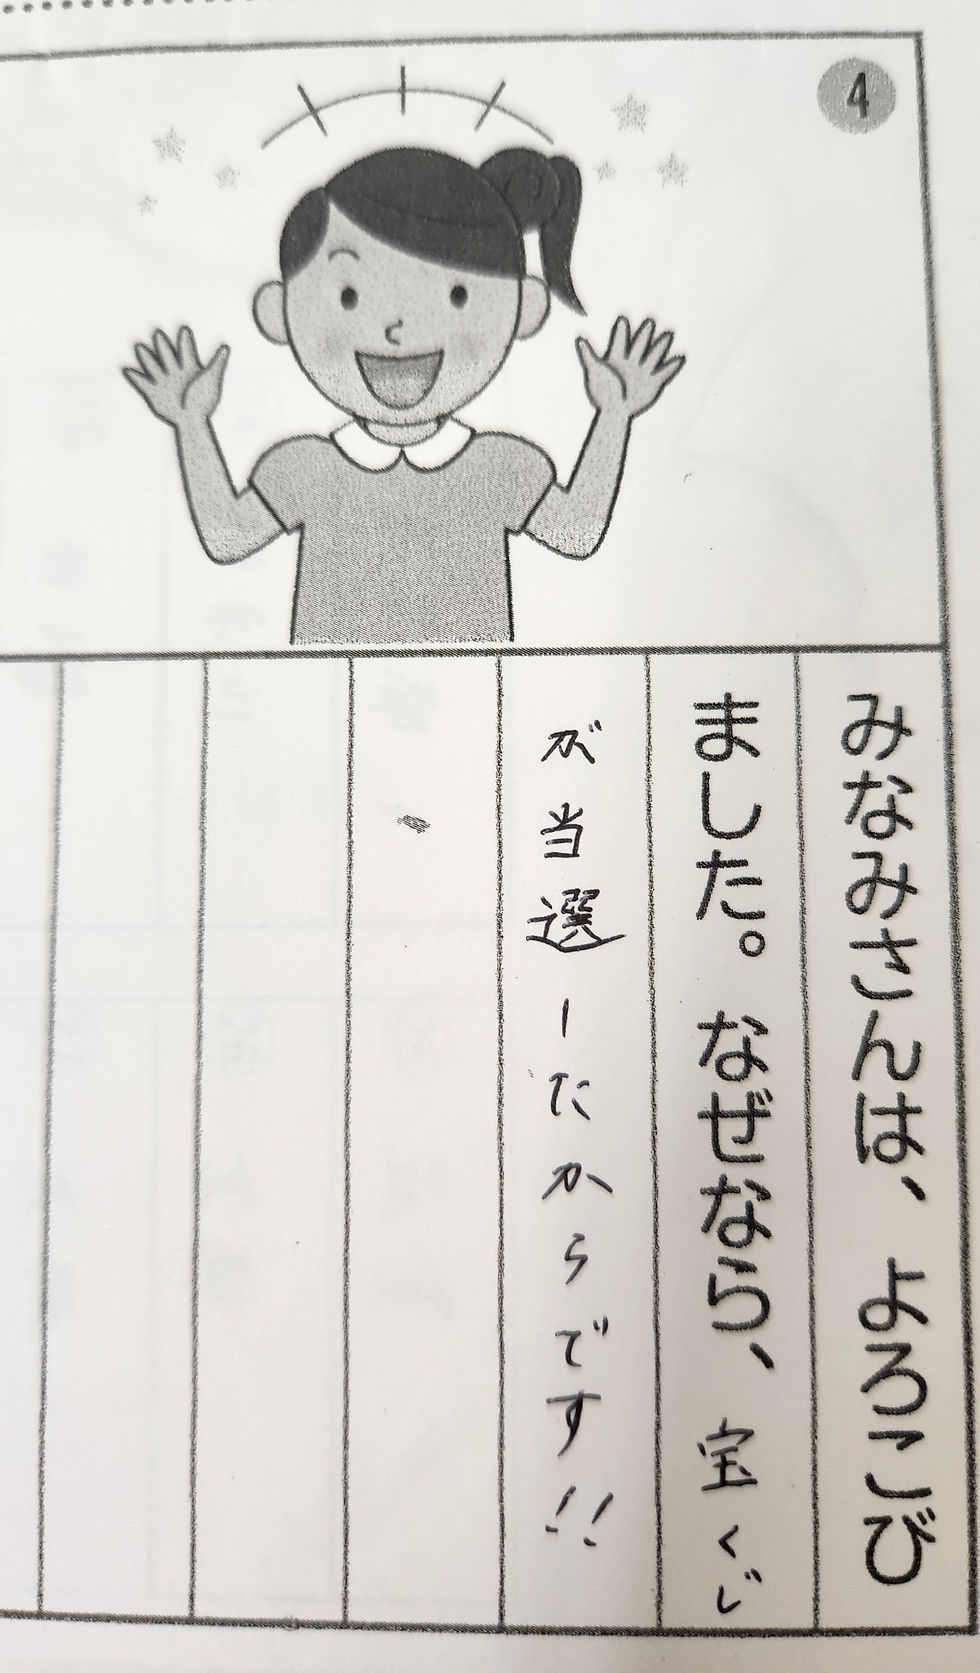 4
みなみさんは、よろこび
ました。なぜなら、宝くじ
が当選したからです!!